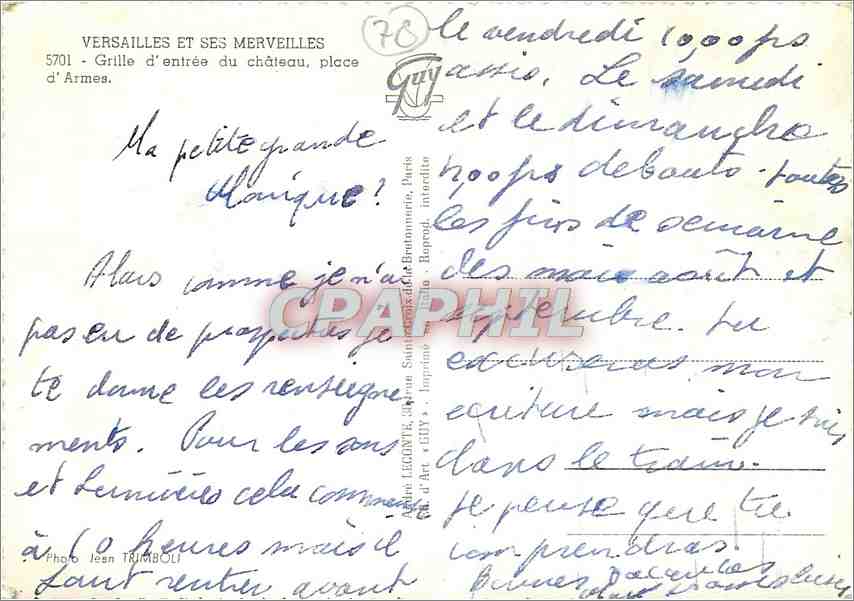 VERSAILLES ET SES MERVEILLES
5701 - Grille d'entrée du château, place
d'Armes.
78
Guy
Ma petite grande
Monique?
Alors comme je n'ai
pas eu de prospectus je
te donne les renseigne
ments. Pour les sons
et Lumières cela commence
à 10 heures mais il
faut rentrer avant
Photo Jean TRIMBOLI
André LECONTE, 38, rue Sainte-Croix-de-la-Bretonnerie, Paris
Ed. d'Art « GUY » - Imprimé en Italie - Reprod. interdite
CPAPHIL
le vendredi
assis. Le samedi
et le dimanche
debouts. toutes
les fins de semaine
des mois août et
septembre. tu
excuseras mon
écriture mais je suis
dans le train.
je pense que tu
comprendras.
Bonnes Vacances